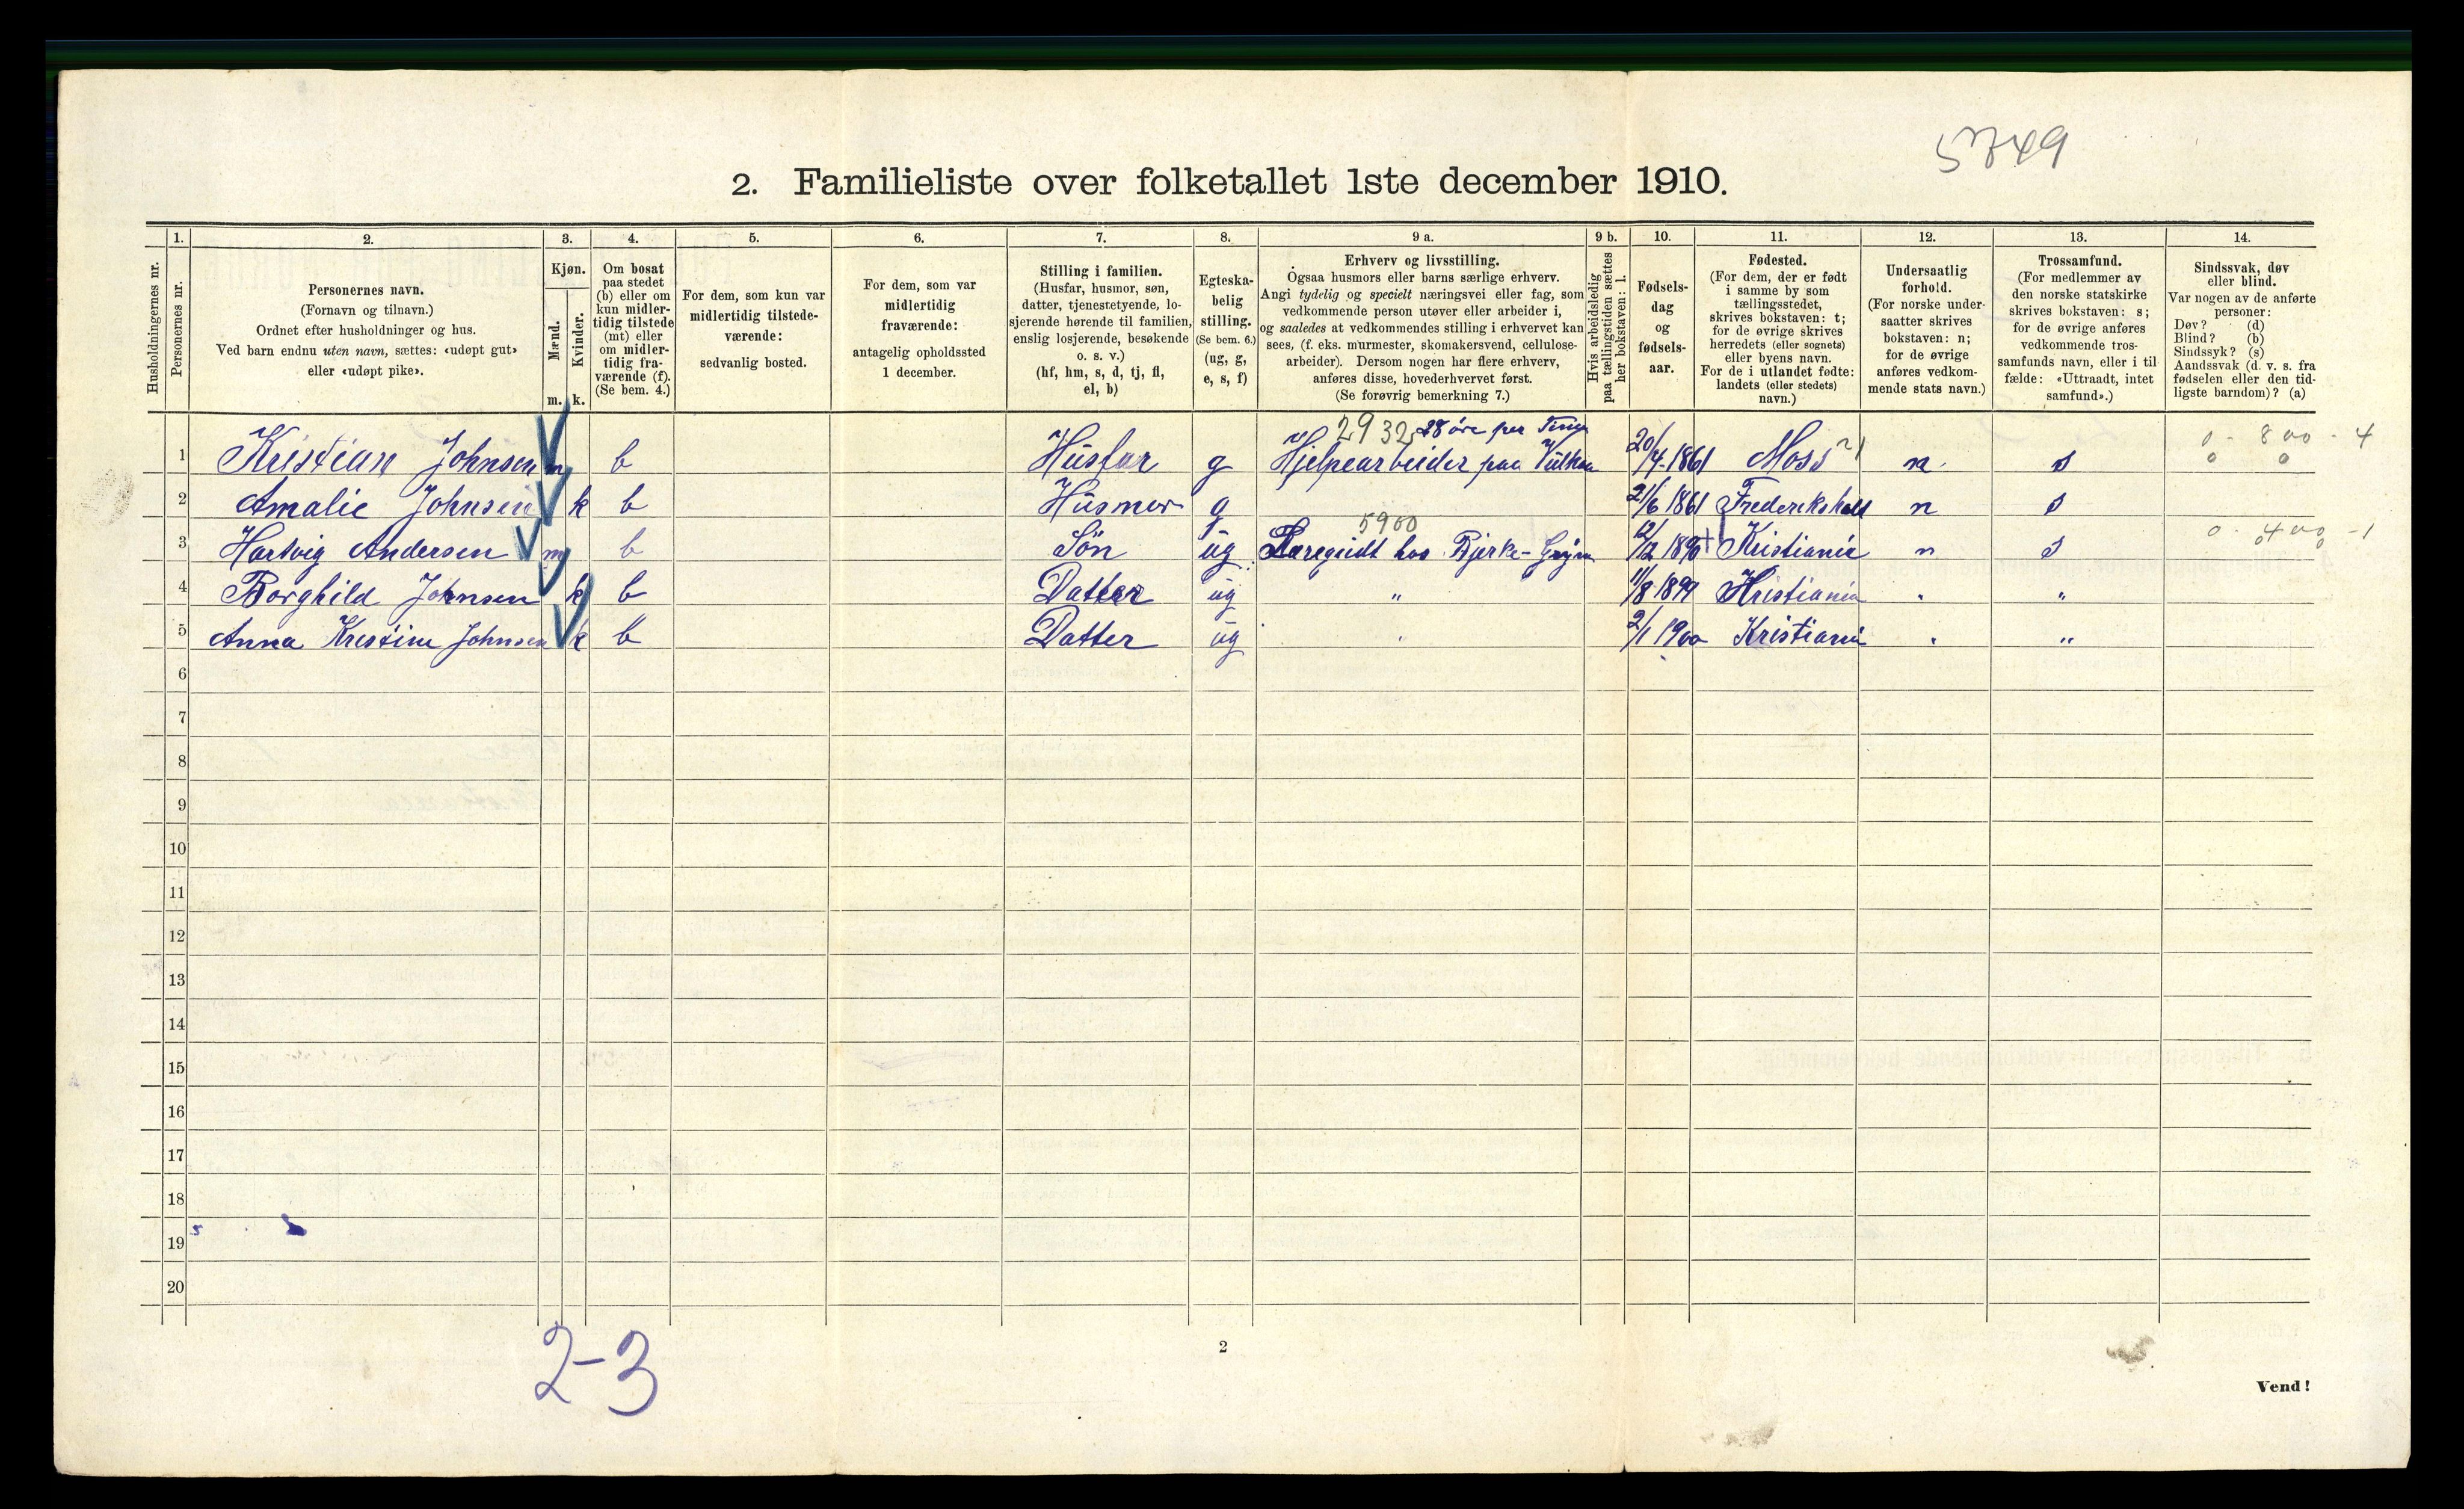 5749
2. Familieliste over folketallet 1ste december 1910.
Husholdningernes nr.
1. Personernes nr.
2. Personernes navn.
(Fornavn og tilnavn.)
Ordnet efter husholdninger og hus.
Ved barn endnu uten navn, sættes: «udøpt gut»
eller «udøpt pike».
3. Kjøn.
Mænd. m.
Kvinder. k.
4. Om bosat
paa stedet
(b) eller om
kun midler-
tidig tilstede
(mt) eller
om midler-
tidig fra-
værende (f).
(Se bem. 4.)
5. For dem, som kun var
midlertidig tilstede-
værende:
sedvanlig bosted.
6. For dem, som var
midlertidig
fraværende:
antagelig opholdssted
1 december.
7. Stilling i familien.
(Husfar, husmor, søn,
datter, tjenestetyende, lo-
sjerende hørende til familien,
enslig losjerende, besøkende
o. s. v.)
(hf, hm, s, d, tj, fl,
el, b)
8. Egteska-
belig
stilling.
(Se bem. 6.)
(ug, g,
e, s, f)
9 a. Erhverv og livsstilling.
Ogsaa husmors eller barns særlige erhverv.
Angi tydelig og specielt næringsvei eller fag, som
vedkommende person utøver eller arbeider i,
og saaledes at vedkommendes stilling i erhvervet kan
sees, (f. eks. murmester, skomakersvend, cellulose-
arbeider). Dersom nogen har flere erhverv,
anføres disse, hovederhvervet først.
(Se forøvrig bemerkning 7.)
9 b. Hvis arbeidsledig
paa tællingstiden sættes
her bokstaven: l.
10. Fødsels-
dag
og
fødsels-
aar.
11. Fødested.
(For dem, der er født
i samme by som
tællingsstedet,
skrives bokstaven: t;
for de øvrige skrives
herredets (eller sognets)
eller byens navn.
For de i utlandet fødte:
landets (eller stedets)
navn.)
12. Undersaatlig
forhold.
(For norske under-
saatter skrives
bokstaven: n;
for de øvrige
anføres vedkom-
mende stats navn.)
13. Trossamfund.
(For medlemmer av
den norske statskirke
skrives bokstaven: s;
for de øvrige anføres
vedkommende tros-
samfunds navn, eller i til
fælde: «Uttraadt, intet
samfund».)
14. Sindssvak, døv
eller blind.
Var nogen av de anførte
personer:
Døv? (d)
Blind? (b)
Sindssyk? (s)
Aandssvak (d. v. s. fra
fødselen eller den tid-
ligste barndom)? (a)
2932 28 øre per Time
1 Kristian Johnsen m b Husfar g Hjelpearbeider paa Vulkan 20/4-1861 Moss n s 0 - 800 - 4
0 0
2 Amalie Johnsen k b Husmor g 21/6 1861 Frederikshald n s
5900
3 Hartvig Andersen m b Søn ug Læregudt hos Bjerke- 12/12 1890 Kristiania n s 0 - 400 - 1
4 Borghild Johnsen k b Datter ug " 11/8 1899 Kristiania " "
5 Anna Kristine Johnsen k b Datter ug " 2/1 1900 Kristiania " "
6
7
8
9
10
11
12
13
14
15
16
17
18
19
20
2-3
2
Vend!